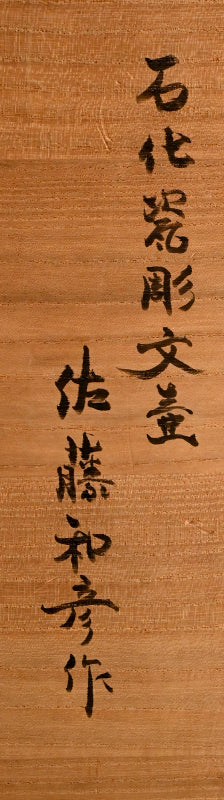 石化瓷彫文壷
佐藤和彦作